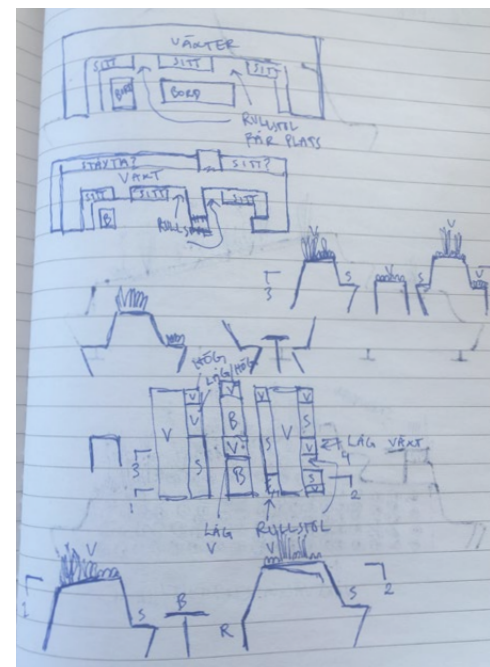 VÄXTER
SITT SITT SITT
BORD BORD
RULLSTOL
FÅR PLATS
STÖTTA? SITT?
VÄXT
SITT SITT SITT
B RULLSTOL
V V
S S V
3
V
HÖG
LÅG HÖG
V V V V
V B S V S
V V LÅG VÄXT
3 S B 4
1 S 2
V
LÅG RULLSTOL
V
V V
1 B 2
S R S